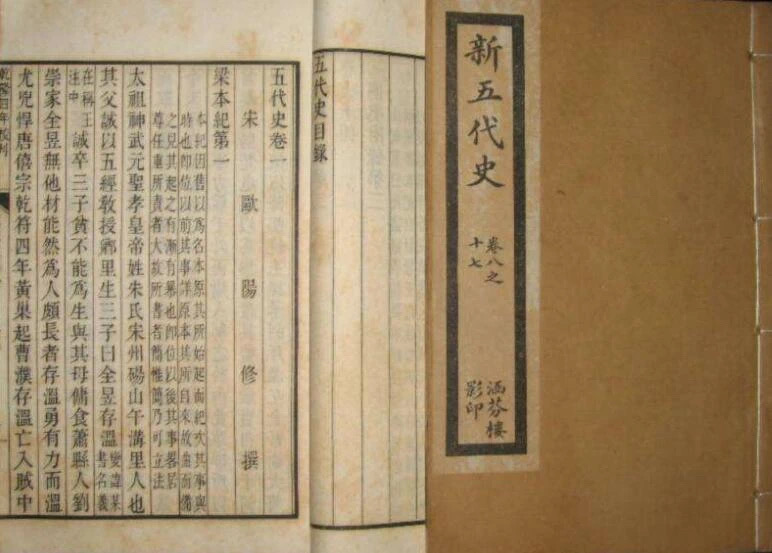 新五代史
卷八之
十七
涵芬樓
影印
五代史目録
五代史卷一
宋歐陽修撰
梁本紀第一
本紀因舊以爲名本原其所始起而紀次其事與
時也即位以前其事詳原本其所自來故曲而備
之見其起之有漸有暴也即位以後其事畧居
尊任重所責者大故所書者簡惟簡乃可立法
太祖神武元聖孝皇帝姓朱氏宋州碭山午溝里人也
其父誠以五經敎授鄉里生三子曰全昱存溫變諱某書名義
在稱王注中誠卒三子貧不能爲生與其母傭食蕭縣人劉
崇家全昱無他材能然爲人頗長者存溫勇有力而溫
尤兇悍唐僖宗乾符四年黃巢起曹濮存溫亡入賊中
乾隆四年校刊